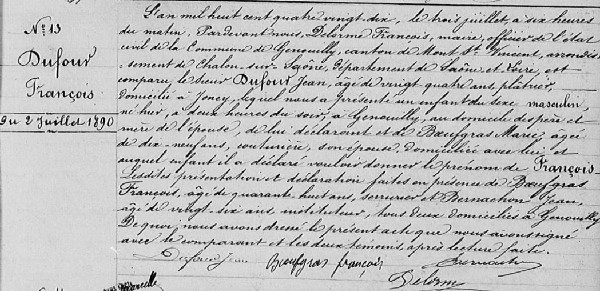 N° 13
Dufour
François
du 2 Juillet 1890
L'an mil huit cent quatre vingt dix, le trois juillet à six heures
du matin, Pardevant nous, Delorme François, maire, officier de l'état
civil de la Commune de Genouilly, canton de Mont St Vincent, arrondis
sement de Chalon-sur-Saône, département de Saône et Loire, est
comparu le sieur Dufour Jean, âgé de vingt quatre ans, plâtrier,
domicilié à Joncy, lequel nous a présenté un enfant du sexe masculin,
né hier, à deux heures du soir, à Genouilly, au domicile des père et
mère de l'épouse, de lui déclarant et de Bœufgras Marie, âgée
de dix-neuf ans, couturière, son épouse, domiciliée avec lui, et
auquel enfant il a déclaré vouloir donner le prénom de François
Lesdites présentation et déclaration faites en présence de Bœufgras
François, âgé de quarante huit ans, serrurier et Bernachon Jean,
âgé de vingt-six ans instituteur, tous deux domiciliés à Genouilly
De quoi nous avons dressé le présent acte que nous avons signé
avec le comparant et les deux témoins après lecture faite.
Dufour Jean Bœufgras françois
Delorme